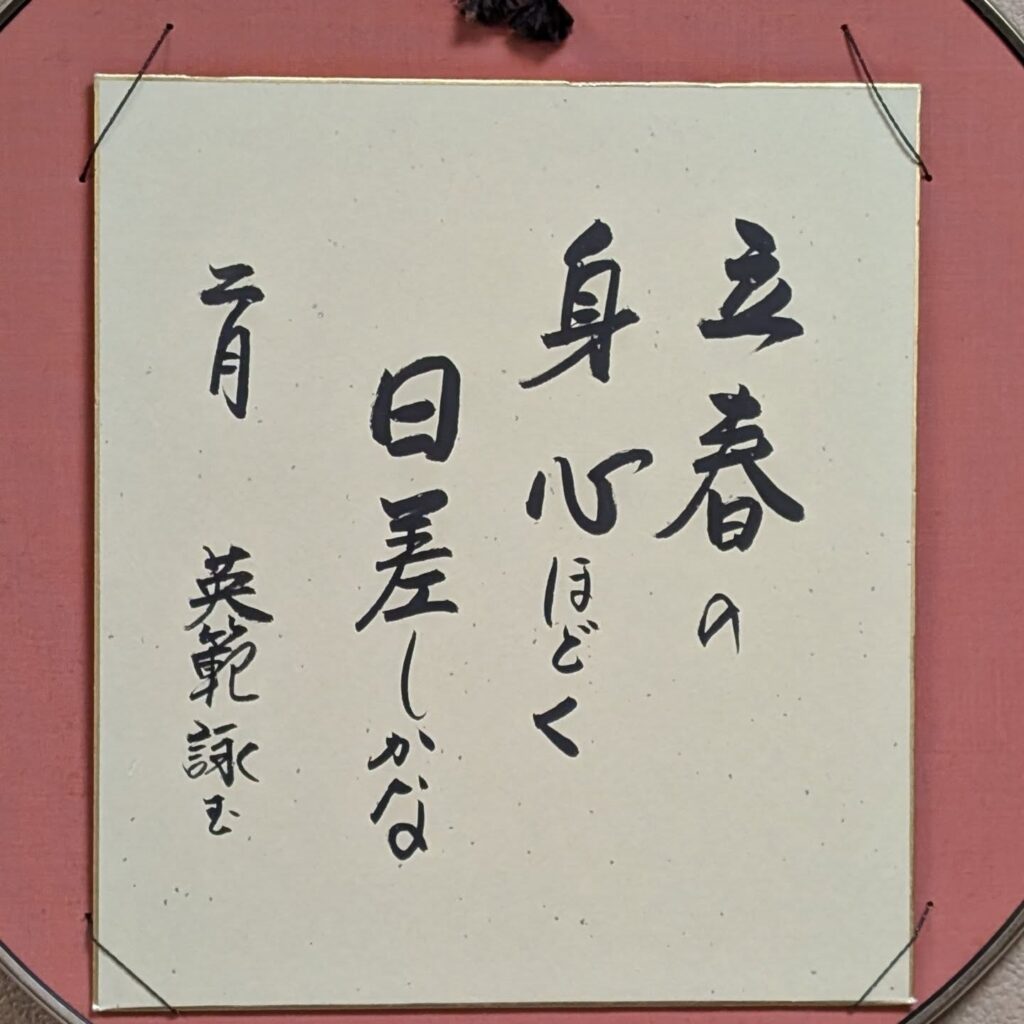 立春の
身心ほどく
日差しかな
二月 英範詠